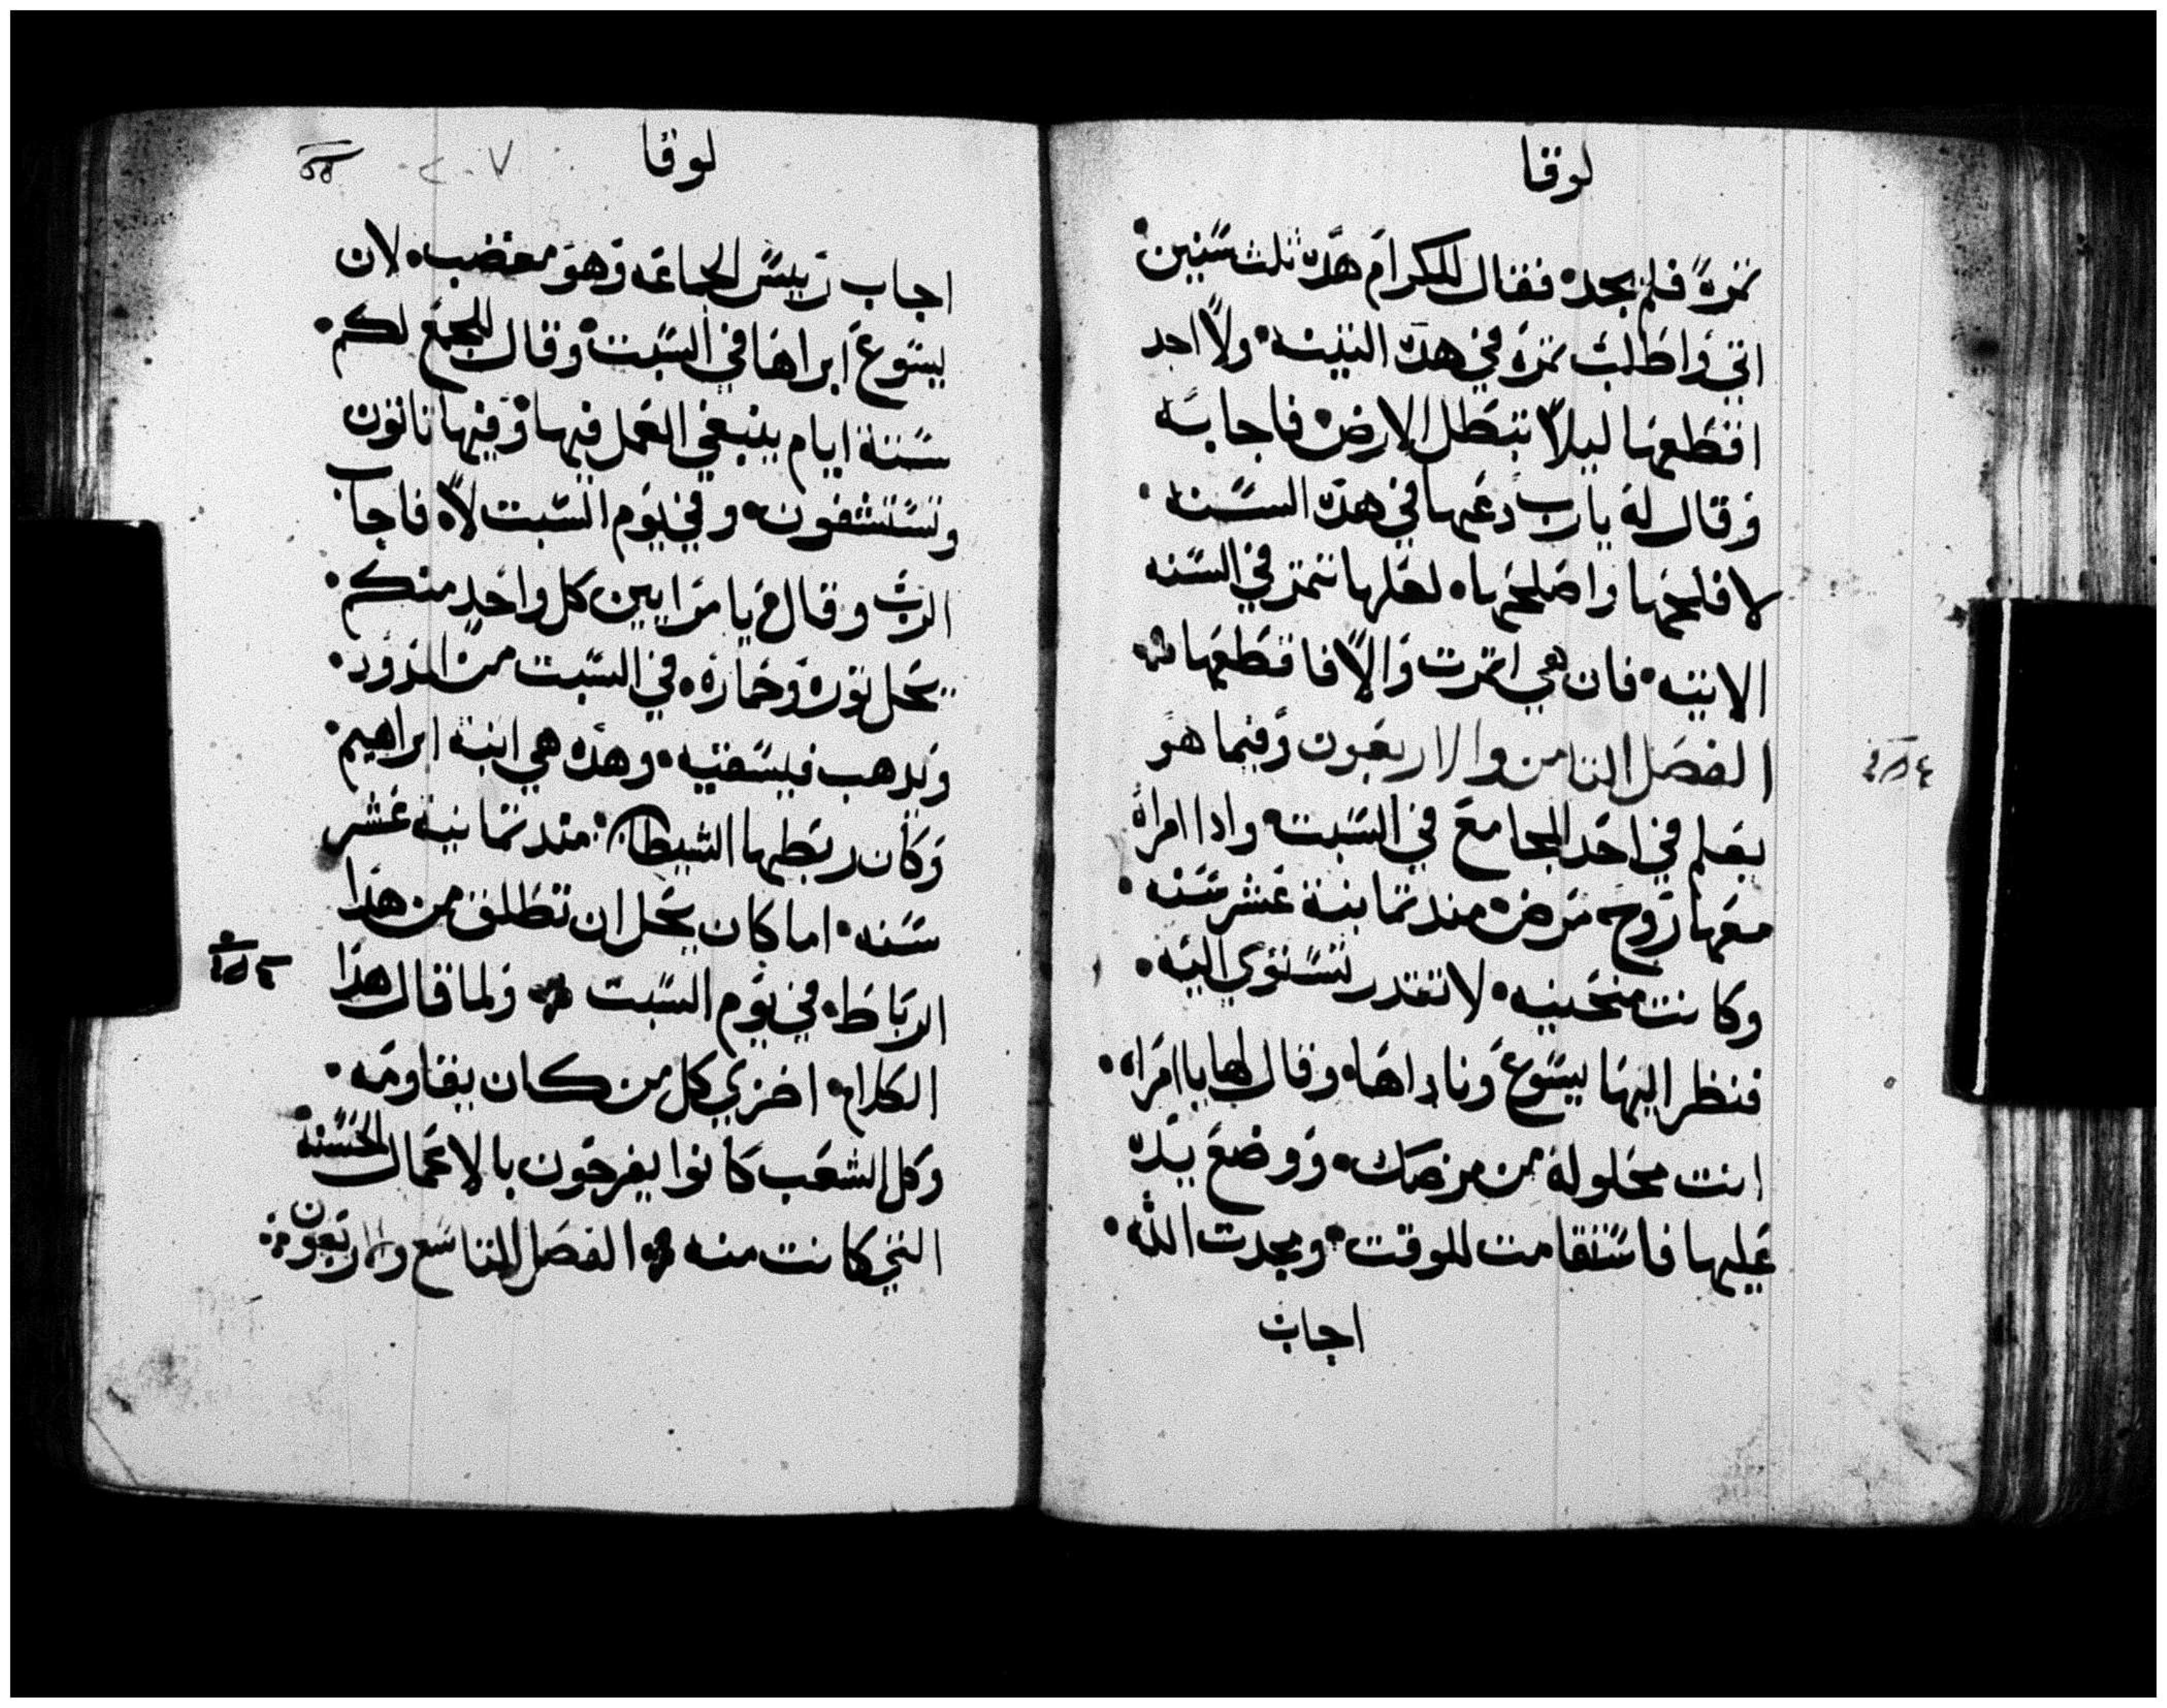 لوقا
ثمرة فلم يجده فقال للكرام هده ثلث سنين
اتي واطلب ثمرة في هده التينه ولا اجد
اقطعها ليلا تبطل الارض فاجابه
وقال له يارب دعها في هده السنه
لافلحها واصلحها لعلها تثمر في السنه
الاتيه فان هي اثمرت والا فاقطعها
الفصل الثامن والاربعون وفيما هو
يعلم في احد المجامع في السبت وادا امراة
معها روح مرض مند ثمانية عشر سنه
وكانت منحنيه لا تقدر تستوي البته
فنظر اليها يسوع وناداها وقال لها ياامراه
انت محلولة من مرضك ووضع يده
عليها فاستقامت للوقت ومجدت الله
اجاب
لوقا
٢٠٧
اجاب رييس الجماعه وهو مغضب لان
يسوع ابراها في السبت وقال للجمع لكم
ستة ايام ينبغي العمل فيها وفيها تاتون
وتستشفون وفي يوم السبت لا فاجاب
الرب وقال يا مرايين كل واحد منكم
يحل ثوره وحماره في السبت من المزود
ويدهب فيسقيه وهده هي ابنة ابراهيم
وكان ربطها الشيطان مند ثمانية عشر
سنه اما كان يحل ان تطلق من هدا
الرباط في يوم السبت ولما قال هدا
الكلام اخزي كل من كان يقاومه
وكل الشعب كانوا يفرحون بالاعمال الحسنة
التي كانت منه الفصل التاسع والاربعون